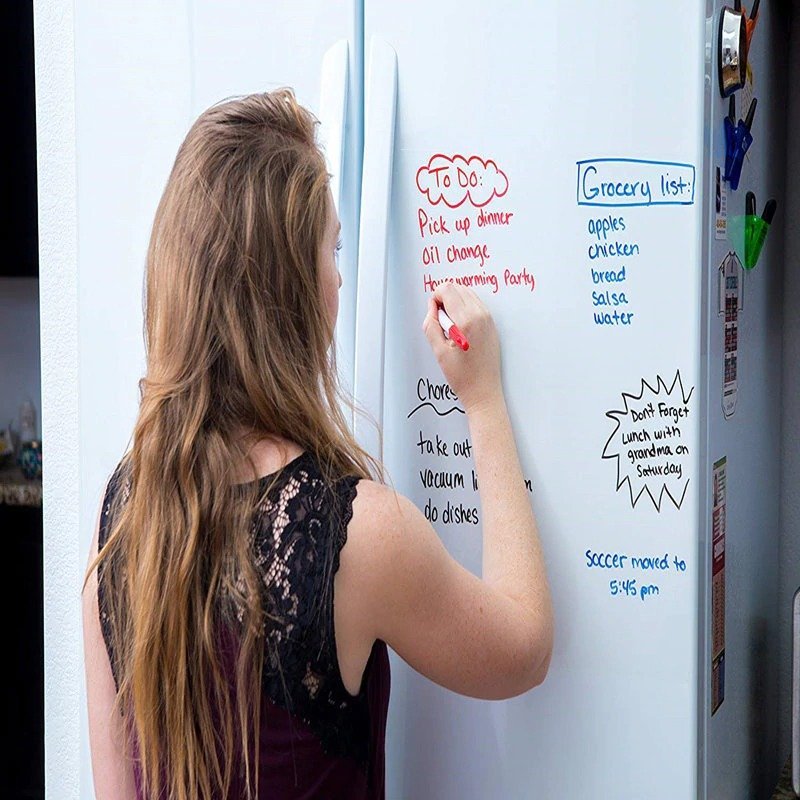 To Do:
Pick up dinner
Oil change
Housewarming Party
Chores
take out
vacuum
do dishes
Grocery list:
apples
chicken
bread
salsa
water
Don't Forget
Lunch with
grandma on
Saturday
Soccer moved to
5:45 pm